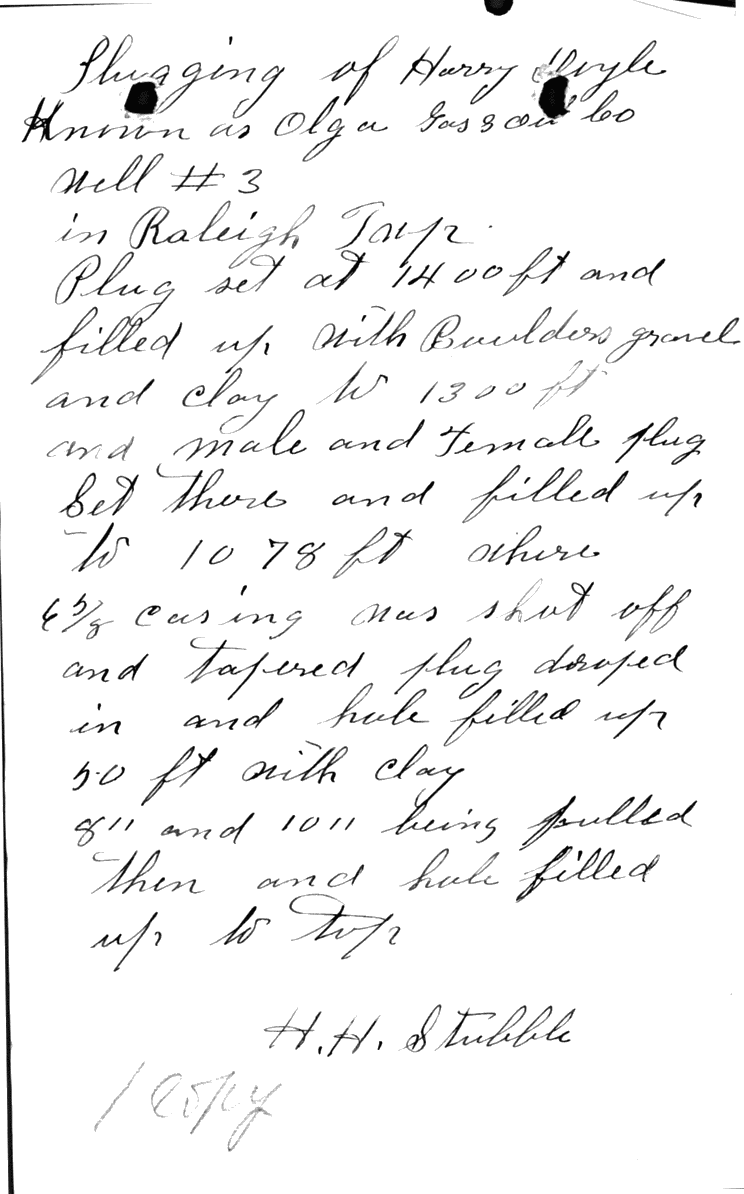 Plugging of Harry Doyle
Known as Olga Gas & Oil Co
Well # 3
in Raleigh Twp.
Plug set at 1400 ft and
filled up with Boulders gravel
and clay to 1300 ft
and male and Female plug
Set there and filled up
to 1078 ft where
6 5/8 casing was shot off
and tapered plug droped
in and hole filled up
50 ft with clay
8" and 10" being pulled
then and hole filled
up to top
H. H. Stubble
1 Copy